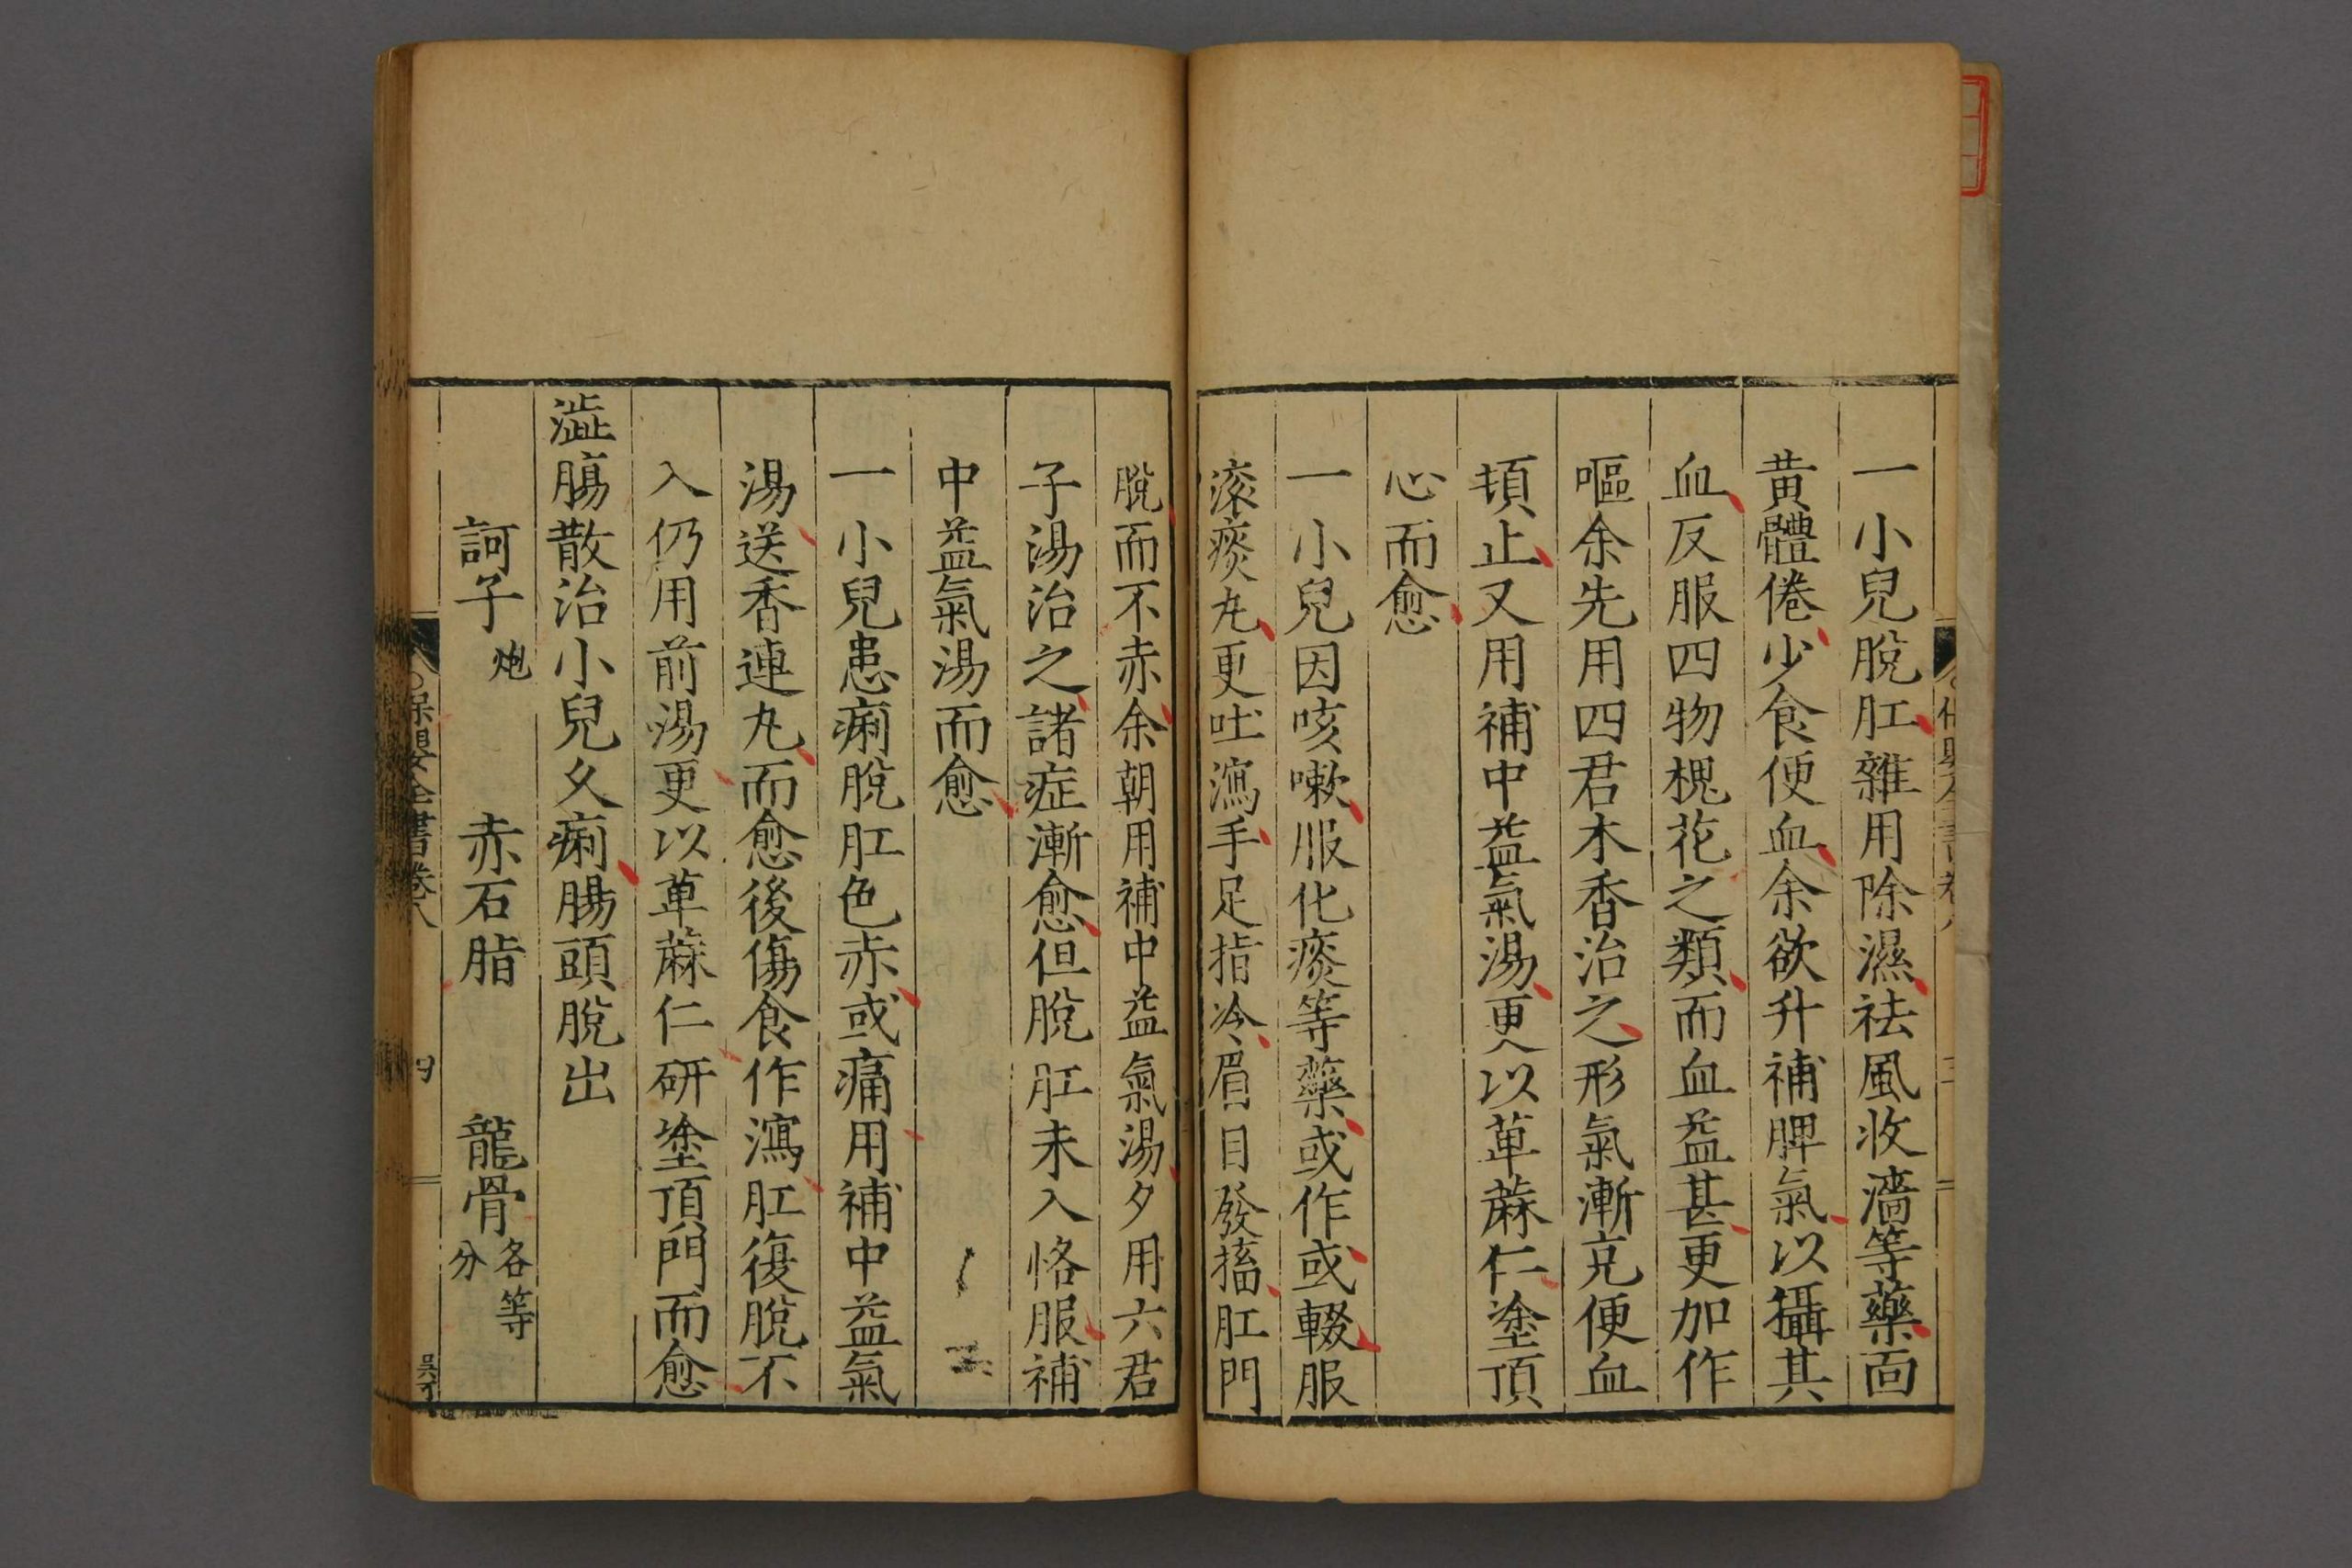 一小兒脫肛雜用除濕祛風收濇等藥面
黃體倦少食便血余欲升補脾氣以攝其
血反服四物槐花之類而血益甚更加作
嘔余先用四君木香治之形氣漸充便血
頓止又用補中益氣湯更以萆蔴仁塗頂
心而愈
一小兒因咳嗽服化痰等藥或作或輟服
滚痰丸更吐瀉手足指冷眉目發搐肛門
脫而不赤余朝用補中益氣湯夕用六君
子湯治之諸症漸愈但脫肛未入恪服補
中益氣湯而愈
一小兒患痢脫肛色赤或痛用補中益氣
湯送香連丸而愈後傷食作瀉肛復脫不
入仍用前湯更以萆蔴仁研塗頂門而愈
澁腸散治小兒久痢腸頭脫出
訶子炮 赤石脂 龍骨各等分
保嬰全書卷八 四